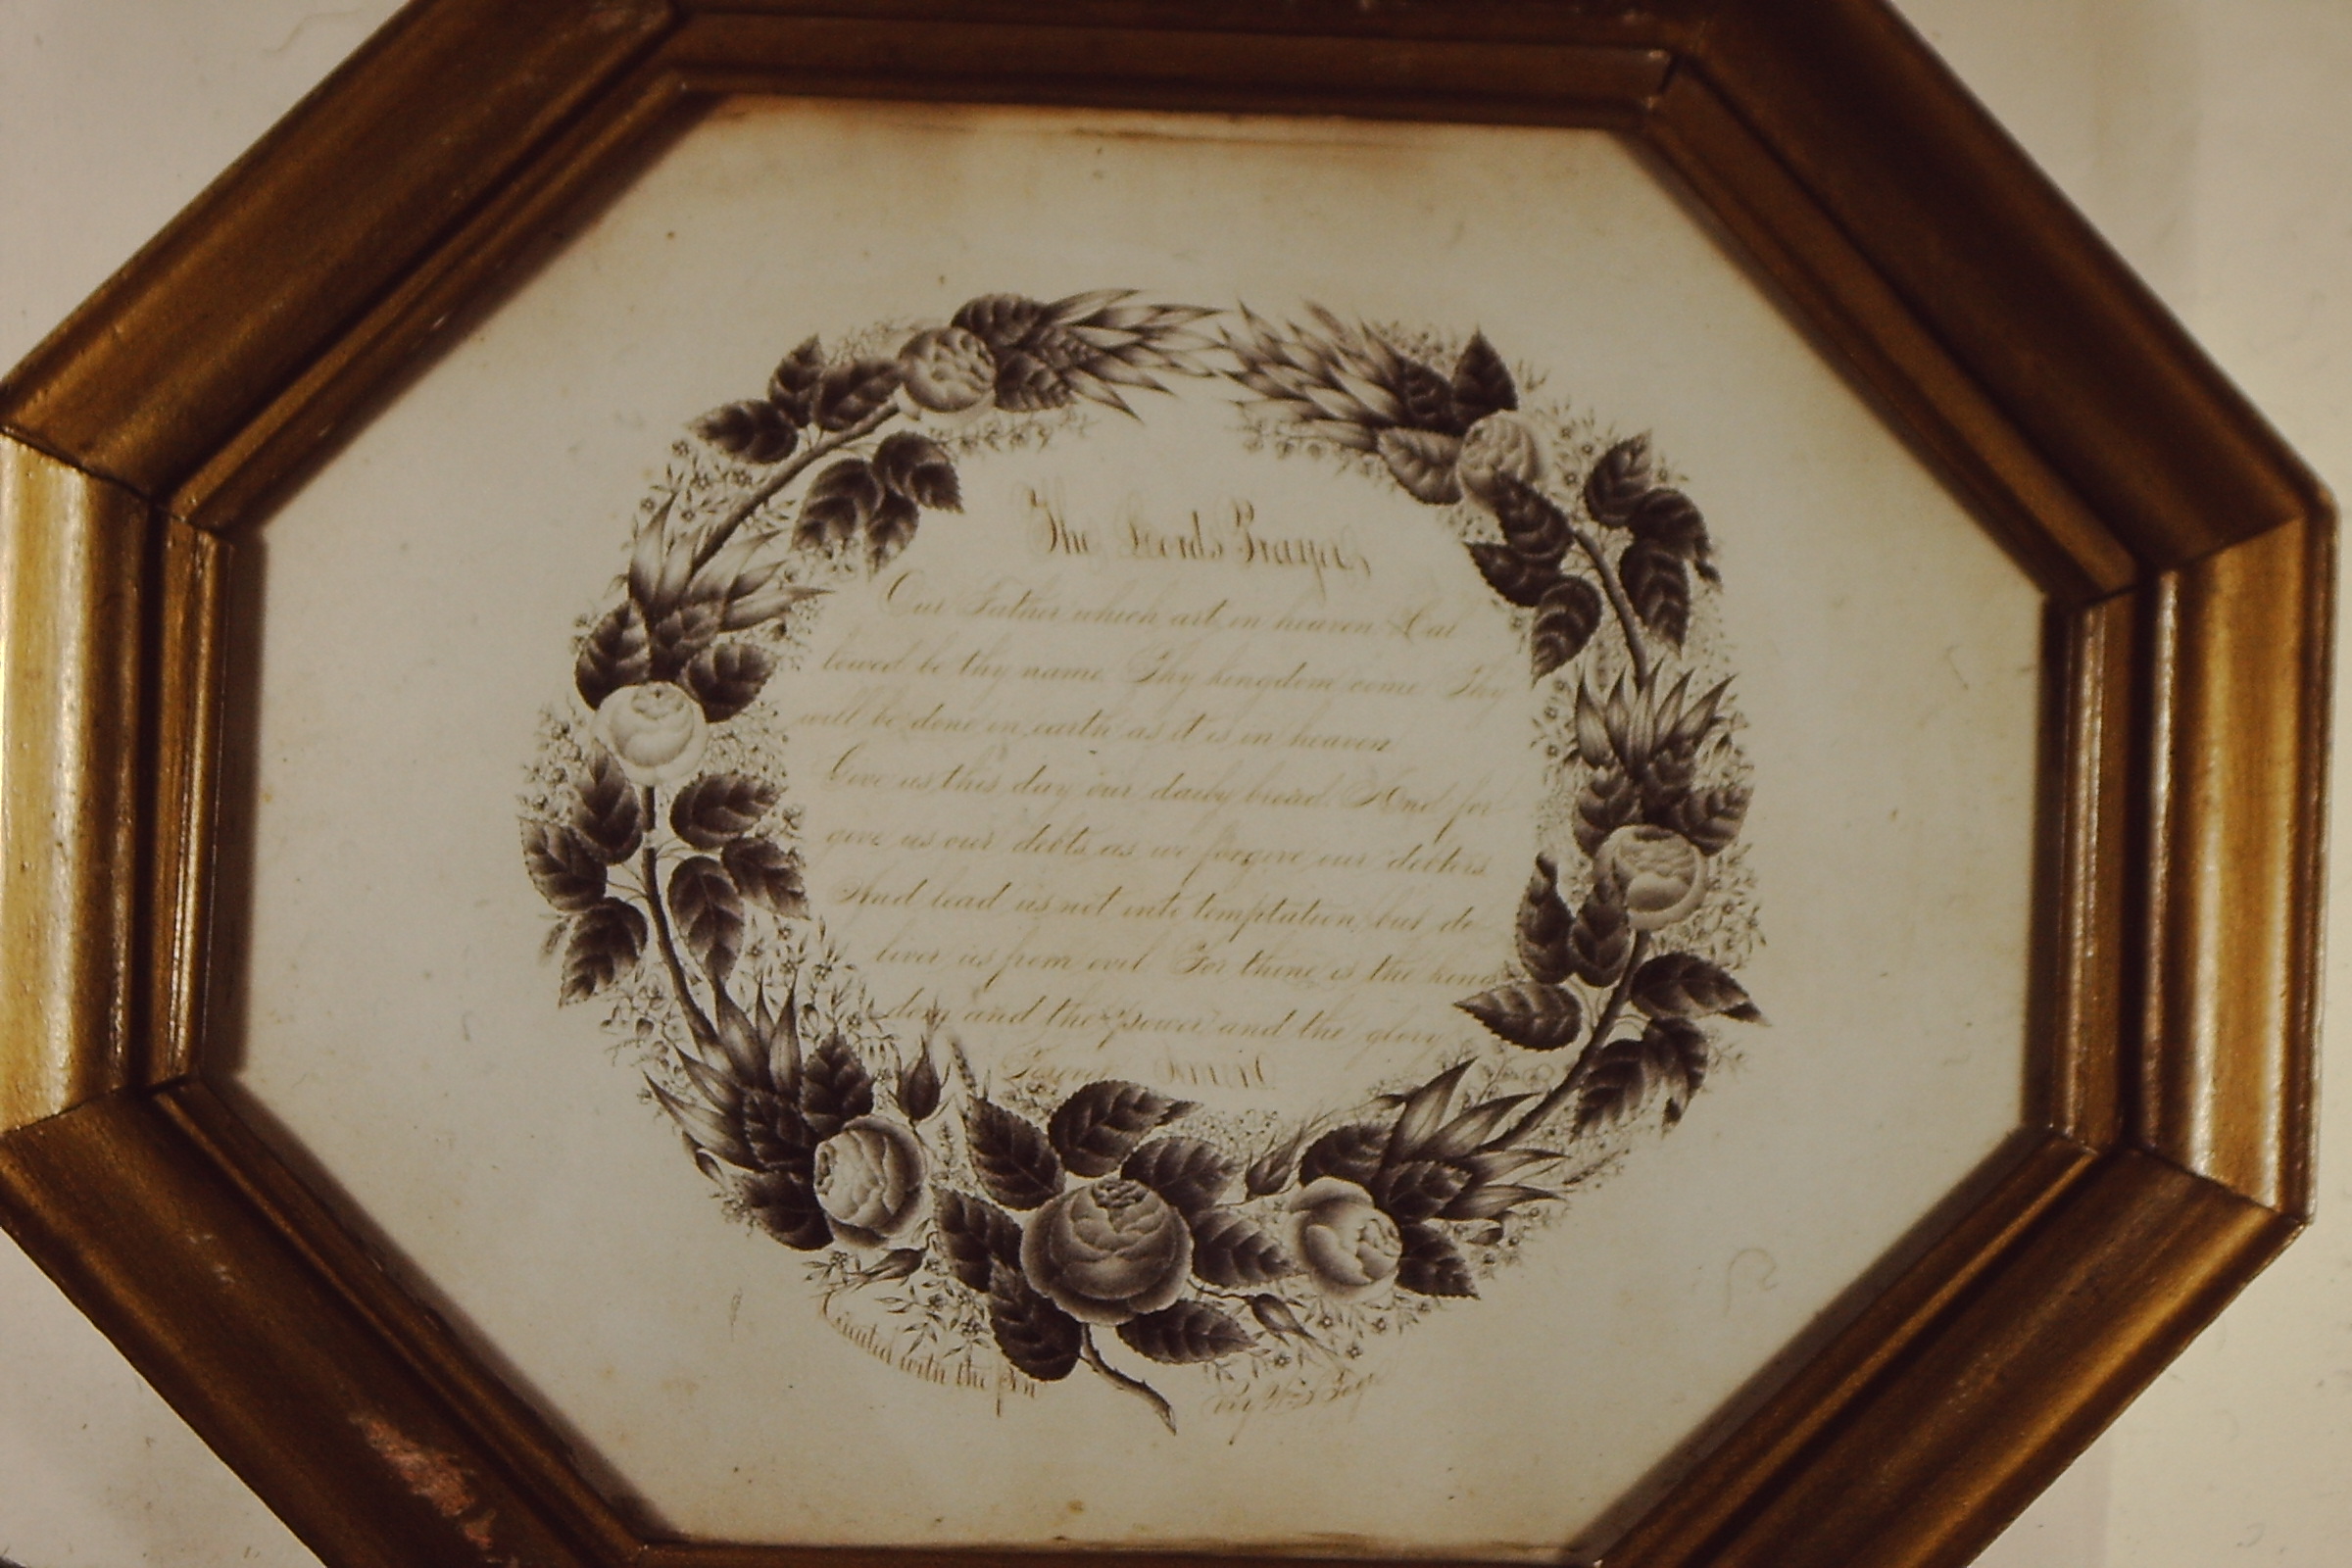 The Lords Prayer,
Our Father which art in heaven Hal
lowed be thy name. Thy kingdom come. Thy
will be done in earth as it is in heaven
Give us this day our daily bread. And for
give us our debts as we forgive our debtors.
And lead us not into temptation, but de
liver us from evil. For thine is the king
dom and the power and the glory
Forever Amen
with the pen
By Wm